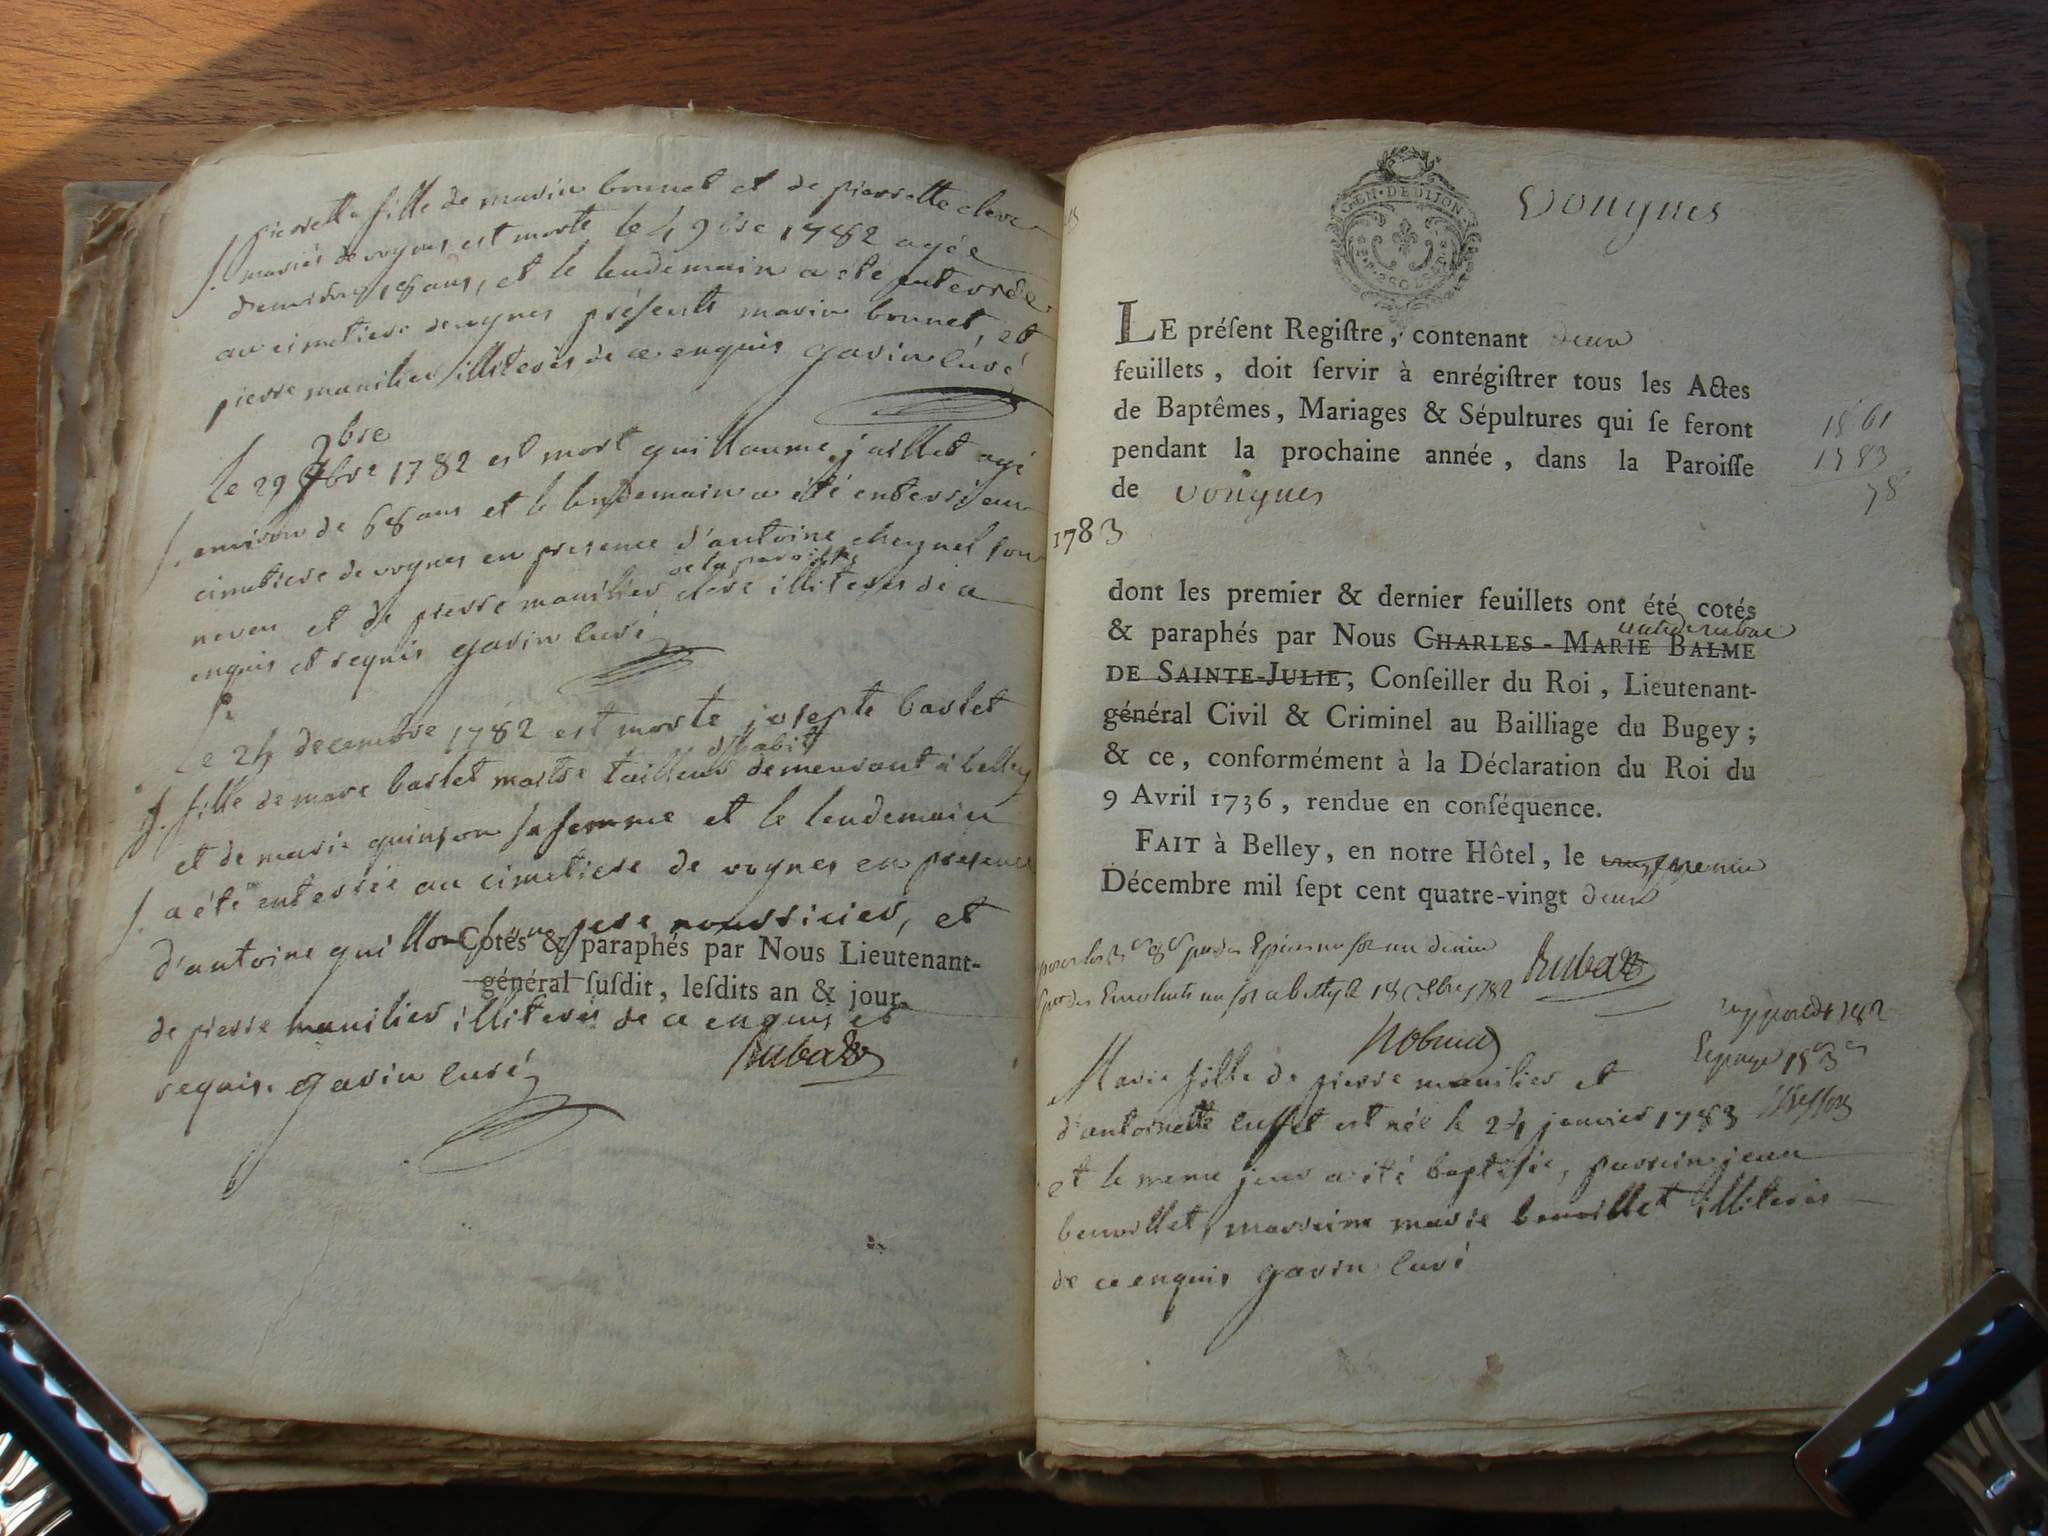 pierrette fille de marin bonnet et de pierrette clerc
mariés de vognes est morte le 4 9bre 1782 agée
d'environ ans, et le lendemain a été enterrée
au cimetiere de vognes présents marin bonnet, et
pierre manilier illiterés de ce enquis gavin Curé
9bre
le 29 9bre 1782 est mort guillaume jaillet agé
environ de 68 ans et le lendemain a été enterré au
cimetiere de vognes en presence d'antoine cheynel son
de la paroisse
neveu et de pierre manilier clerc illiterés de ce
enquis et requis gavin curé
Le 24 decembre 1782 est morte josepte barlet
d'habit
fille de marc barlet maitre tailleur demeurant à belley
et de marie guinson sa femme et le lendemain
a été enterrée au cimetiere de vognes en presence
d'antoine guillon son pere nourricier, et
Cotés & paraphés par Nous Lieutenant-
général susdit, lesdits an & jour.
de pierre manilier illiterés de ce enquis et
requis. gavin curé
Rubat
GEN·DE DIJON
Vougnes
LE préſent Regiſtre, contenant deux
feuillets, doit ſervir à enrégiſtrer tous les Actes
de Baptêmes, Mariages & Sépultures qui ſe feront
pendant la prochaine année, dans la Paroiſſe
de vougnes
1861
1783
78
1783
dont les premier & dernier feuillets ont été cotés
& paraphés par Nous CHARLES-MARIE BALME
DE SAINTE-JULIE, Conſeiller du Roi, Lieutenant-
général Civil & Criminel au Bailliage du Bugey;
& ce, conformément à la Déclaration du Roi du
9 Avril 1736, rendue en conſéquence.
FAIT à Belley, en notre Hôtel, le
Décembre mil ſept cent quatre-vingt deux
Rubat
Marie fille de pierre manilier et
d'antoinette cusset est née le 24 janvier 1783
et le meme jour a été baptisée, parrein jean
benoillet, marreine marie benoillet illiterés
de ce enquis gavin Curé